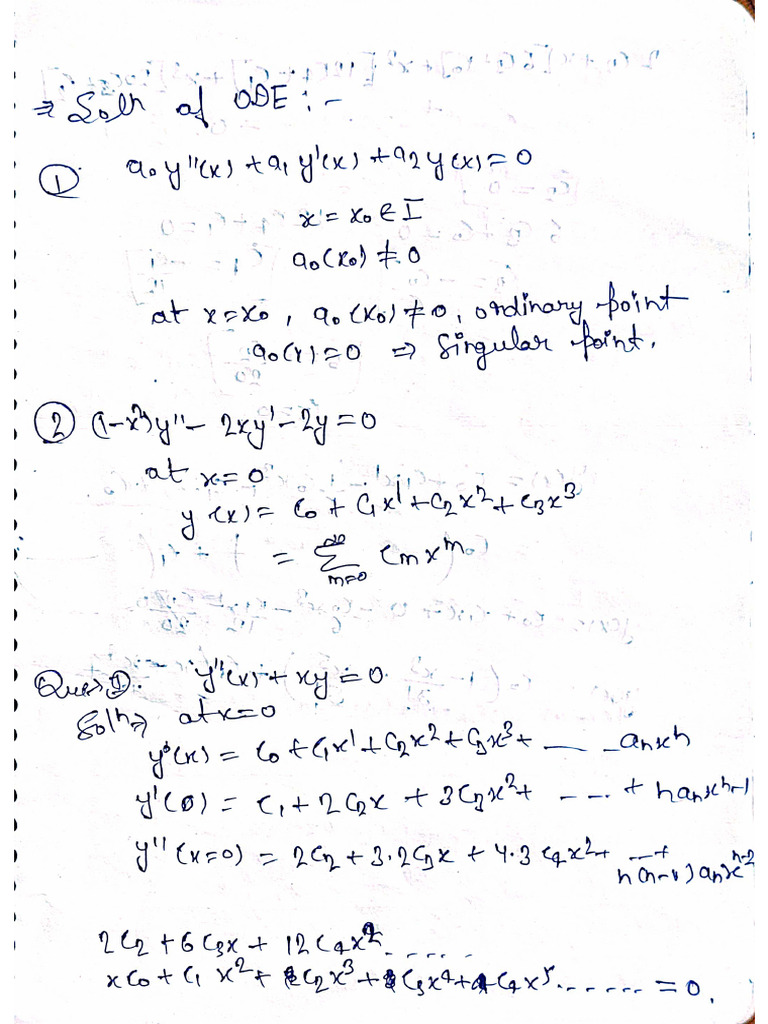 ⇒ Soln of ODE :-
① a₀ y''(x) + a₁ y'(x) + a₂ y(x) = 0
x = x₀ ∈ I
a₀(x₀) ≠ 0
at x = x₀ , a₀(x₀) ≠ 0, ordinary point
a₀(x) = 0 ⇒ Singular point.
② (1-x²)y'' - 2xy' - 2y = 0
at x = 0
y(x) = C₀ + C₁x¹ + C₂x² + C₃x³
= ∑_{m=0}^{∞} Cm x^m
Ques ①. y''(x) + xy = 0
Soln ⇒ at x = 0
y(x) = C₀ + C₁x¹ + C₂x² + C₃x³ + — – aₙxⁿ
y'(0) = C₁ + 2C₂x + 3C₃x² + --- + naₙxⁿ⁻¹
y''(x=0) = 2C₂ + 3·2C₃x + 4·3 C₄x² + --- + n(n-1)aₙxⁿ⁻²
2C₂ + 6C₃x + 12C₄x² .....
xC₀ + C₁x² + C₂x³ + C₃x⁴ + C₄x⁵ ...... = 0.